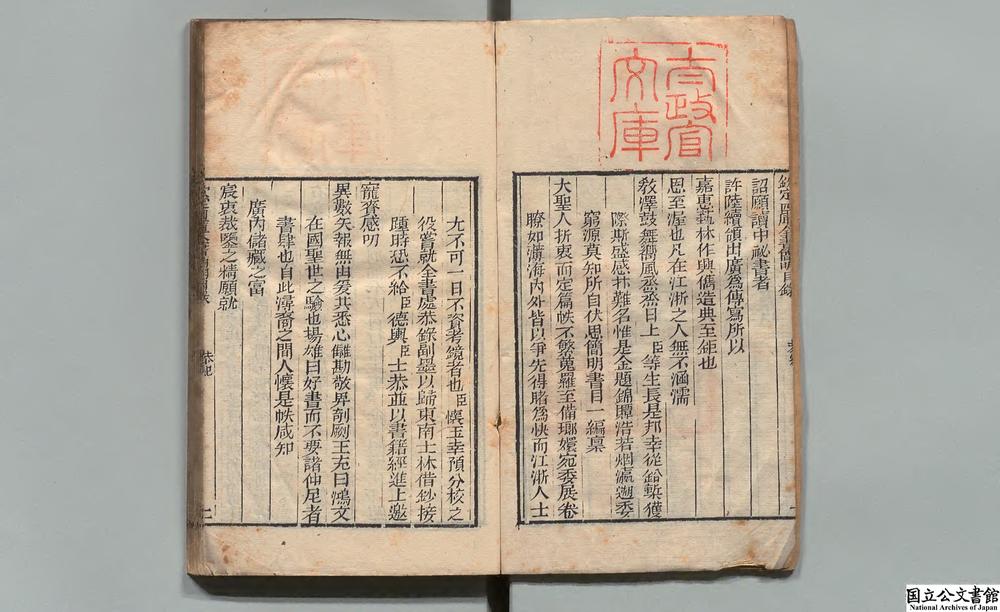 太政官
文庫
欽定四庫全書簡明目錄
詔願讀中祕書者
許陸續領出廣爲傳寫所以
嘉惠藝林作興儁造典至鉅也
恩至渥也凡在江浙之人無不涵濡
敎澤鼓舞嚮風烝烝日上臣等生長是邦幸從鉛槧獲
際斯盛感抃難名惟是金題錦贉浩若烟瀛遡委
窮源莫知所自伏思簡明書目一編稟
大聖人折衷而定篇帙不繁蒐羅至備瑯嬛宛委展卷
瞭如薄海內外皆以爭先得睹爲快而江浙人士
尤不可一日不資考鏡者也臣懷玉幸預分校之
役嘗就全書處恭錄副墨以歸東南士林借鈔接
踵時恐不給臣德輿臣士恭並以書籍經進上邀
寵賚感叨
異數矢報無由爰共悉心讎勘敬畀剞劂王充曰鴻文
在國聖世之驗也揚雄曰好書而不要諸仲尼者
書肆也自此潯裔之間人懷是帙咸知
廣內儲藏之富
宸衷裁鑒之精願就
恭紀
国立公文書館
National Archives of Japan